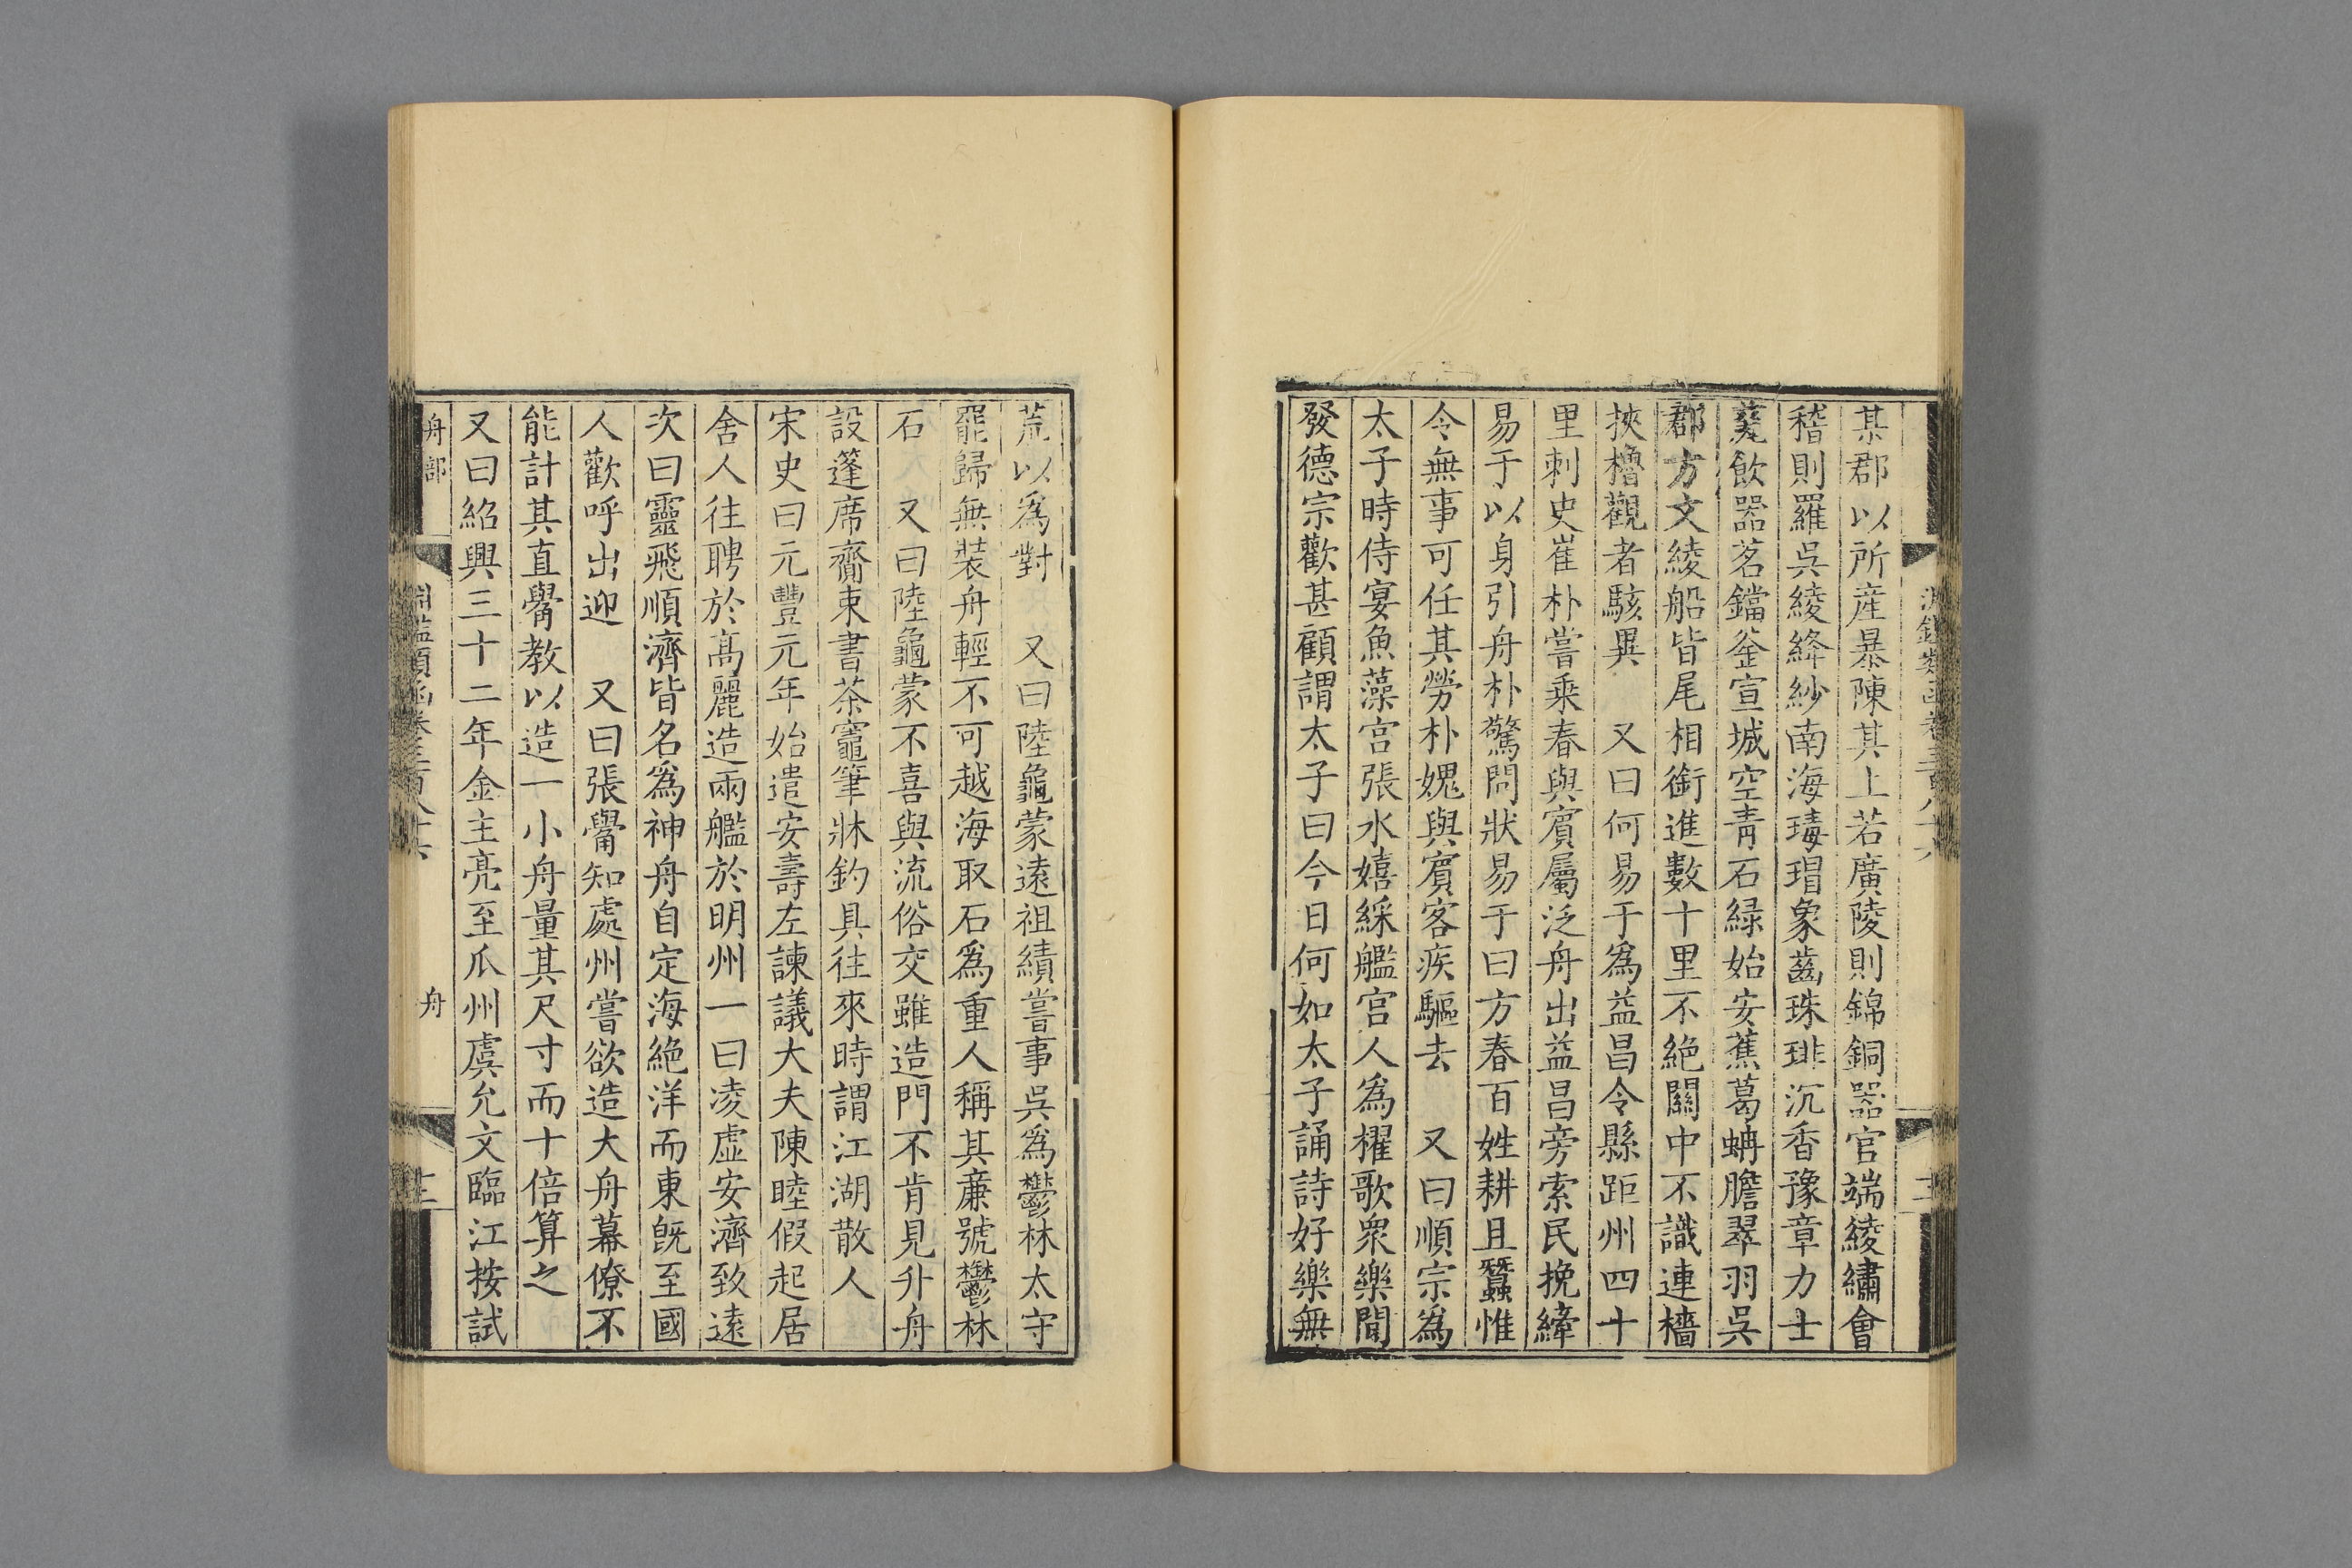 某郡以所産暴陳其上若廣陵則錦銅器官端綾繡會
稽則羅吳綾絳紗南海瑇瑁象齒珠琲沉香豫章力士
甆飲器茗鐺釜宣城空青石綠始安蕉葛蚺膽翠羽吳
郡方文綾船皆尾相銜進數十里不絶關中不識連檣
挾櫓觀者駭異　又曰何易于爲益昌令縣距州四十
里刺史崔朴嘗乗春與賔屬泛舟出益昌旁索民挽繂
易于以身引舟朴驚問狀易于曰方春百姓耕且蠶惟
令無事可任其勞朴媿與賔客疾驅去　又曰順宗爲
太子時侍宴魚藻宫張水嬉綵艦宫人爲櫂歌衆樂間
發德宗歡甚顧謂太子曰今日何如太子誦詩好樂無
荒以爲對　又曰陸龜蒙遠祖績嘗事吳爲鬱林太守
罷歸無裝舟輕不可越海取石爲重人稱其亷號鬱林
石　又曰陸龜蒙不喜與流俗交雖造門不肯見升舟
設篷席齎束書茶竈筆牀釣具往來時謂江湖散人
宋史曰元豐元年始遣安壽左諫議大夫陳睦假起居
舍人往聘於高麗造兩艦於明州一曰凌虛安濟致遠
次曰靈飛順濟皆名爲神舟自定海絶洋而東旣至國
人歡呼出迎　又曰張觷知處州嘗欲造大舟幕僚不
能計其直觷教以造一小舟量其尺寸而十倍算之
又曰紹興三十二年金主亮至瓜州虞允文臨江按試
舟部
淵鑑類函卷三百八十六
舟